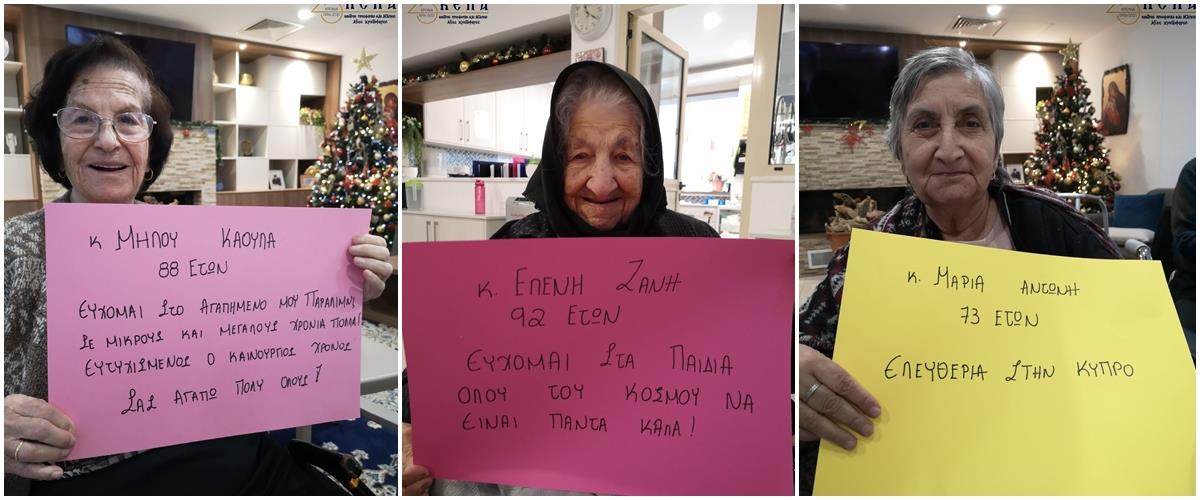 κ ΜΗΛΟΥ ΚΑΟΥΛΑ
88 ΕΤΩΝ
ΕΥΧΟΜΑΙ ΣΤΟ ΑΓΑΠΗΜΕΝΟ ΜΟΥ ΠΑΡΑΛΙΜΝΙ
ΣΕ ΜΙΚΡΟΥΣ ΚΑΙ ΜΕΓΑΛΟΥΣ ΧΡΟΝΙΑ ΠΟΛΛΑ!
ΕΥΤΥΧΙΣΜΕΝΟΣ Ο ΚΑΙΝΟΥΡΓΙΟΣ ΧΡΟΝΟΣ
ΣΑΣ ΑΓΑΠΩ ΠΟΛΥ ΟΛΟΥΣ!
κ. ΕΛΕΝΗ ΖΑΝΗ
92 ΕΤΩΝ
ΕΥΧΟΜΑΙ ΣΤΑ ΠΑΙΔΙΑ
ΟΛΟΥ ΤΟΥ ΚΟΣΜΟΥ ΝΑ
ΕΙΝΑΙ ΠΑΝΤΑ ΚΑΛΑ!
κ. ΜΑΡΙΑ ΑΝΤΩΝΗ
73 ΕΤΩΝ
ΕΛΕΥΘΕΡΙΑ ΣΤΗΝ ΚΥΠΡΟ